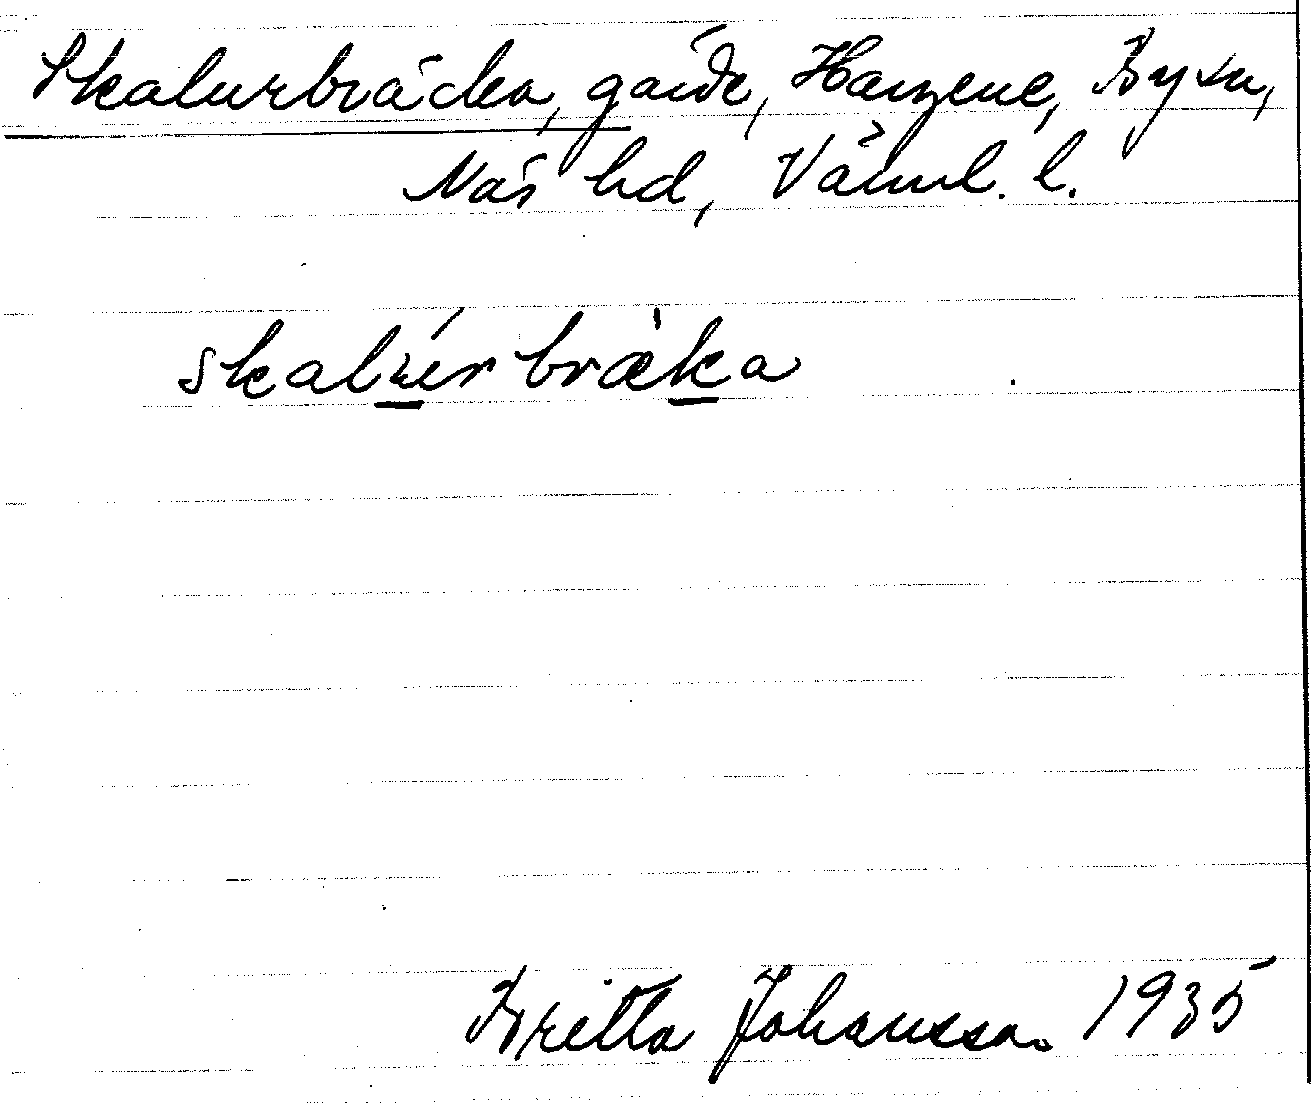 Skalurbräcka, gärde, Harzene, By sn,
Näs hd, Värml. l.
skalúrbræ̀ka
Britta Johansson 1935